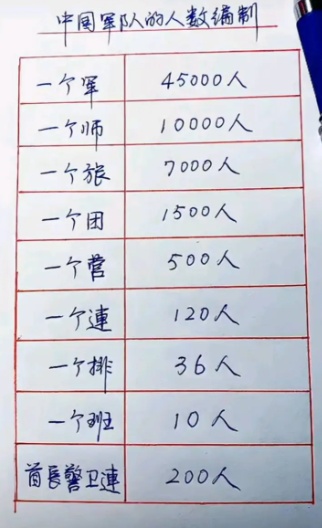 中国军队的人数编制
一个军 45000人
一个师 10000人
一个旅 7000人
一个团 1500人
一个营 500人
一个連 120人
一个排 36人
一个班 10人
首長警卫連 200人